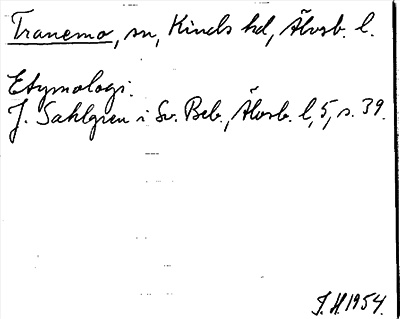 Tranemo, sn, Kinds hd, Älvsb. l.
Etymologi.
J. Sahlgren i Sv. Beb., Älvsb. l, 5, s. 39.
J. H 1954.